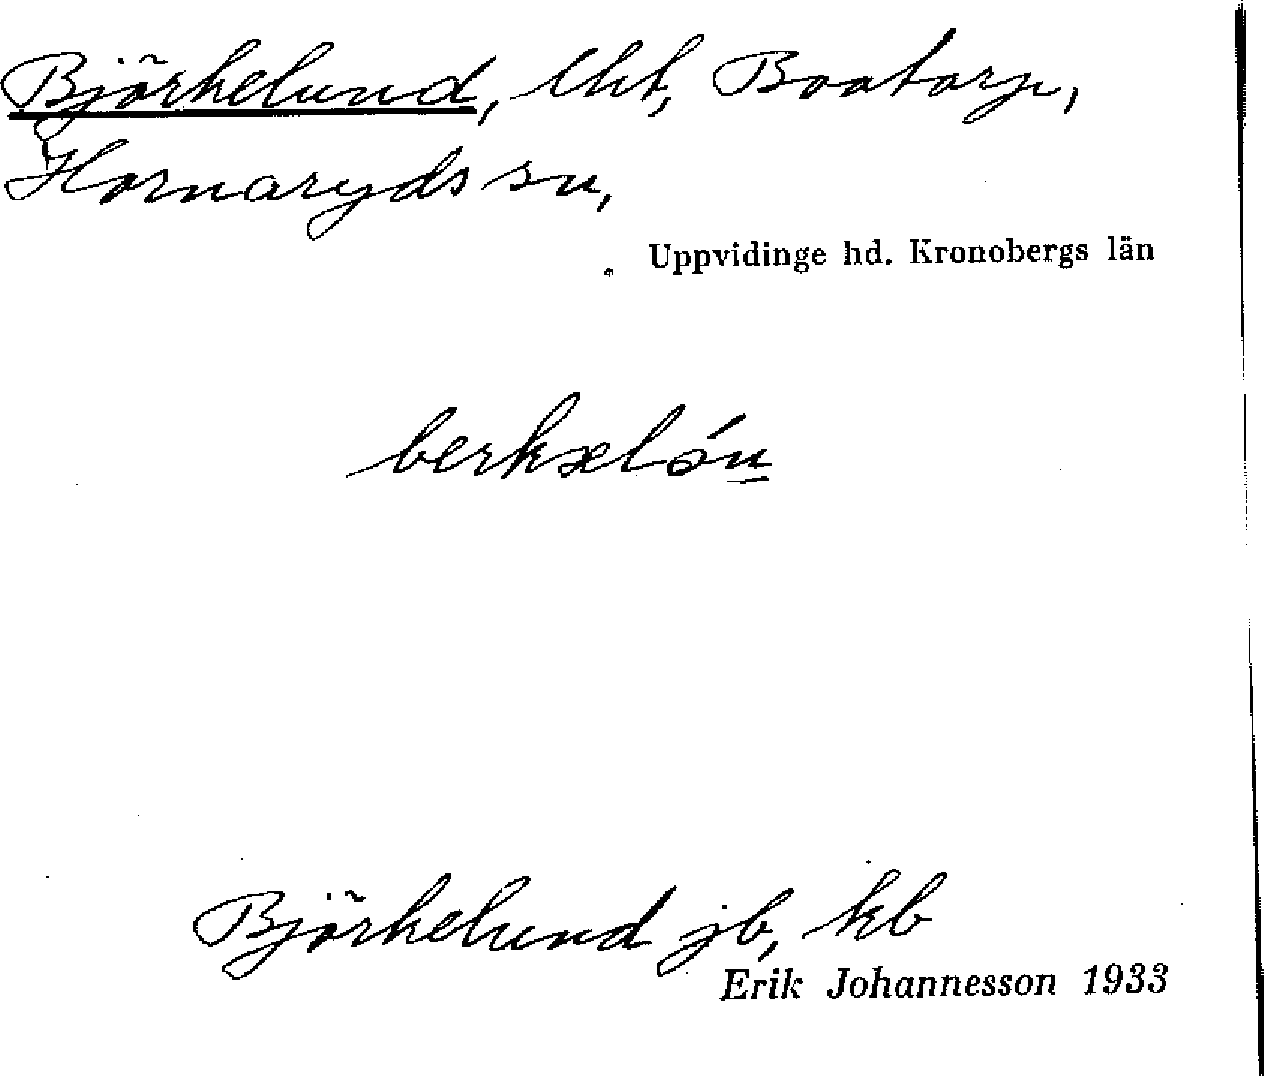 Björkelund, lht, Boatorp,
Hornaryds sn,
Uppvidinge hd. Kronobergs län
berkælón
Björkelund jb, kb
Erik Johannesson 1933